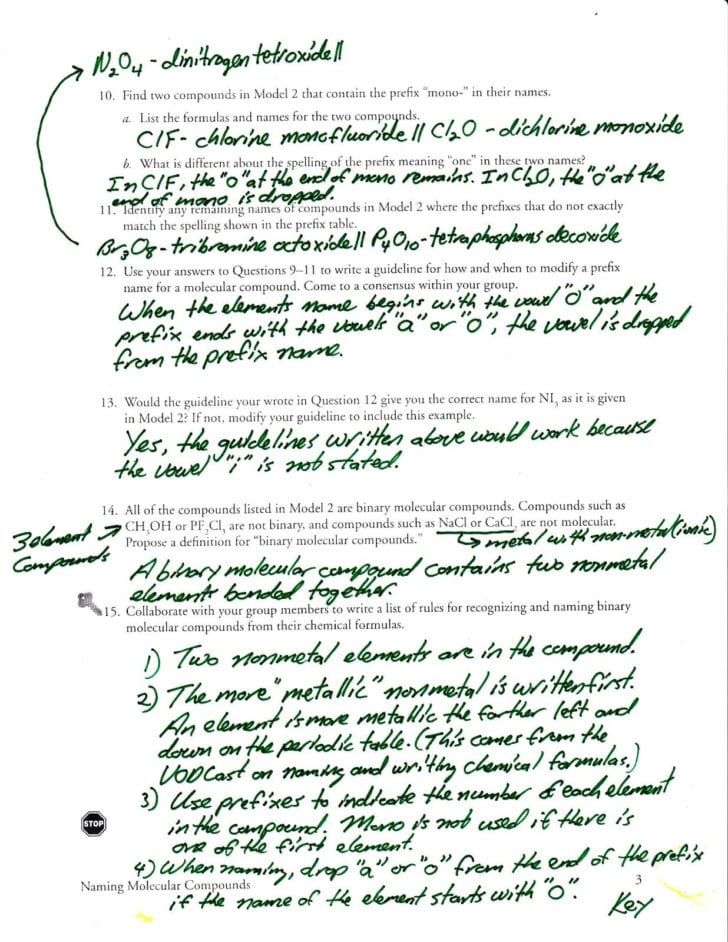 N₂O₄ - dinitrogen tetroxide ||
10. Find two compounds in Model 2 that contain the prefix “mono-” in their names.
a. List the formulas and names for the two compounds.
ClF - chlorine monofluoride || Cl₂O - dichlorine monoxide
b. What is different about the spelling of the prefix meaning “one” in these two names?
In ClF, the "o" at the end of mono remains. In Cl₂O, the "o" at the
end of mono is dropped.
11. Identify any remaining names of compounds in Model 2 where the prefixes that do not exactly
match the spelling shown in the prefix table.
Br₃O₈ - tribromine octoxide || P₄O₁₀ - tetraphosphorus decoxide
12. Use your answers to Questions 9–11 to write a guideline for how and when to modify a prefix
name for a molecular compound. Come to a consensus within your group.
When the elements name begins with the vowel "o" and the
prefix ends with the vowels "a" or "o", the vowel is dropped
from the prefix name.
13. Would the guideline your wrote in Question 12 give you the correct name for NI₃ as it is given
in Model 2? If not, modify your guideline to include this example.
Yes, the guidelines written above would work because
the vowel "i" is not stated.
14. All of the compounds listed in Model 2 are binary molecular compounds. Compounds such as
3 element → CH₃OH or PF₃Cl₂ are not binary, and compounds such as NaCl or CaCl₂ are not molecular.
Compounds Propose a definition for “binary molecular compounds.” ↳ metal with non-metal (ionic)
A binary molecular compound contains two nonmetal
elements bonded together.
15. Collaborate with your group members to write a list of rules for recognizing and naming binary
molecular compounds from their chemical formulas.
1) Two nonmetal elements are in the compound.
2) The more "metallic" nonmetal is written first.
An element is more metallic the farther left and
down on the periodic table. (This comes from the
VODCast on naming and writing chemical formulas.)
3) Use prefixes to indicate the number of each element
in the compound. Mono is not used if there is
STOP
one of the first element.
4) When naming, drop "a" or "o" from the end of the prefix
if the name of the element starts with "o".
Naming Molecular Compounds 3
Key